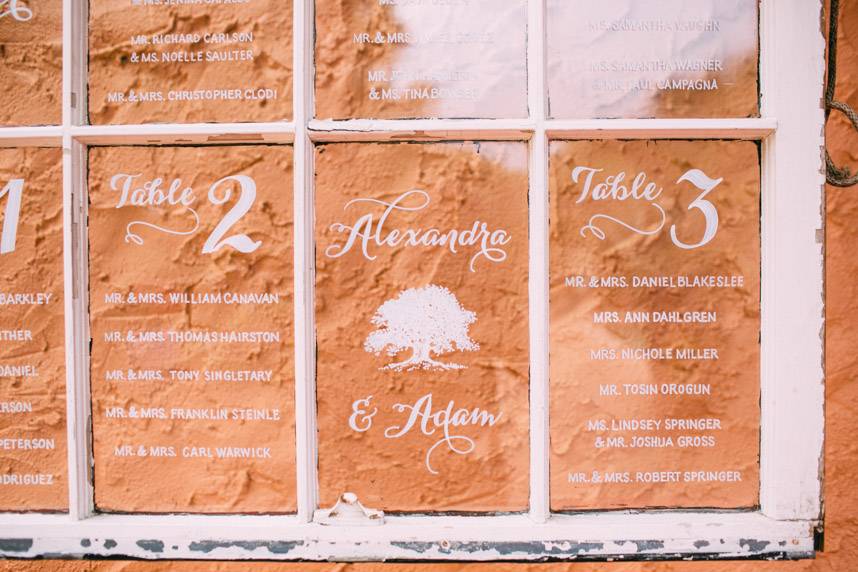 MR. RICHARD CARLSON
& MS. NOËLLE SAULTER
MR. & MRS. CHRISTOPHER CLODI
MR. & MRS.
& MS. TINA
MS. SAMANTHA VAUGHN
MS. SAMANTHA WAGNER
& MR. PAUL CAMPAGNA
1
BARKLEY
DANIEL
PETERSON
Table 2
MR. & MRS. WILLIAM CANAVAN
MR. & MRS. THOMAS HAIRSTON
MR. & MRS. TONY SINGLETARY
MR. & MRS. FRANKLIN STEINLE
MR. & MRS. CARL WARWICK
Alexandra
& Adam
Table 3
MR. & MRS. DANIEL BLAKESLEE
MRS. ANN DAHLGREN
MRS. NICHOLE MILLER
MR. TOSIN OROGUN
MS. LINDSEY SPRINGER
& MR. JOSHUA GROSS
MR. & MRS. ROBERT SPRINGER